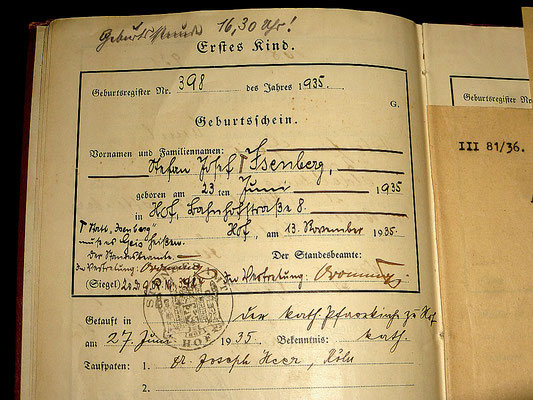 Geburtsstunde 16,30 Uhr!
Erstes Kind.
Geburtsregister Nr. 398 des Jahres 1935.
G.
Geburtsregister Nr.
Geburtsschein.
III 81/36.
Vornamen und Familiennamen:
Stefan Josef Isenberg,
geboren am 23 ten Juni 1935
in Hof, Bahnhofstraße 8.
Hof, am 13. November 1935.
Statt "Isenberg"
muß es heißen.
Der Standesbeamte:
Der Standesbeamte
In Vertretung:
In Vertretung:
(Siegel)
HOF
Getauft in der kath. Pfarrkirche zu Hof
am 27 Juni 1935. Bekenntnis: kath.
Taufpaten: 1. Joseph Heer, Köln
2.